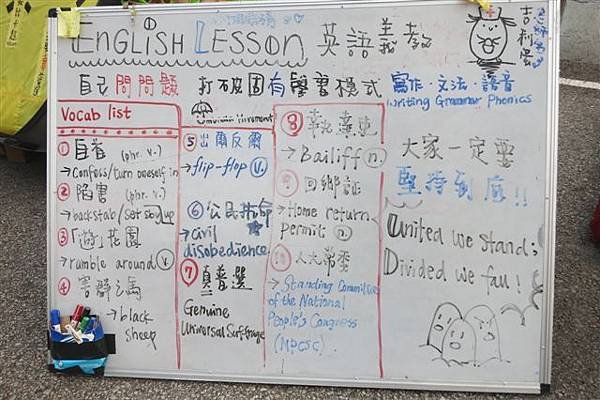 ENGLISH LESSON 英語義教
吉利蛋
自己問問題 打不破固有學習模式 寫作·文法·語音
Writing Grammar Phonics
Vocab list
① 自首 (phr. v.)
→Confess/turn oneself in
② 陷害 (phr. v.)
→backstab/set sb up
③「遊」花園
→ramble around ⓥ
④ 害群之馬
→black sheep
Umbrella Movement
⑤ 出爾反爾
→flip-flop ⓥ
⑥ 公民抗命
→Civil
disobedience
⑦ 真普選
Genuine
Universal Suffrage
⑧ 執達吏
→Bailiff ⓝ
⑨ 回鄉証
→Home return
permit ⓝ
⑩ 人大常委
→Standing Committee
of the National
People's Congress
(NPCSC)
大家一定要
堅持到底!!
United we stand;
Divided we fall!